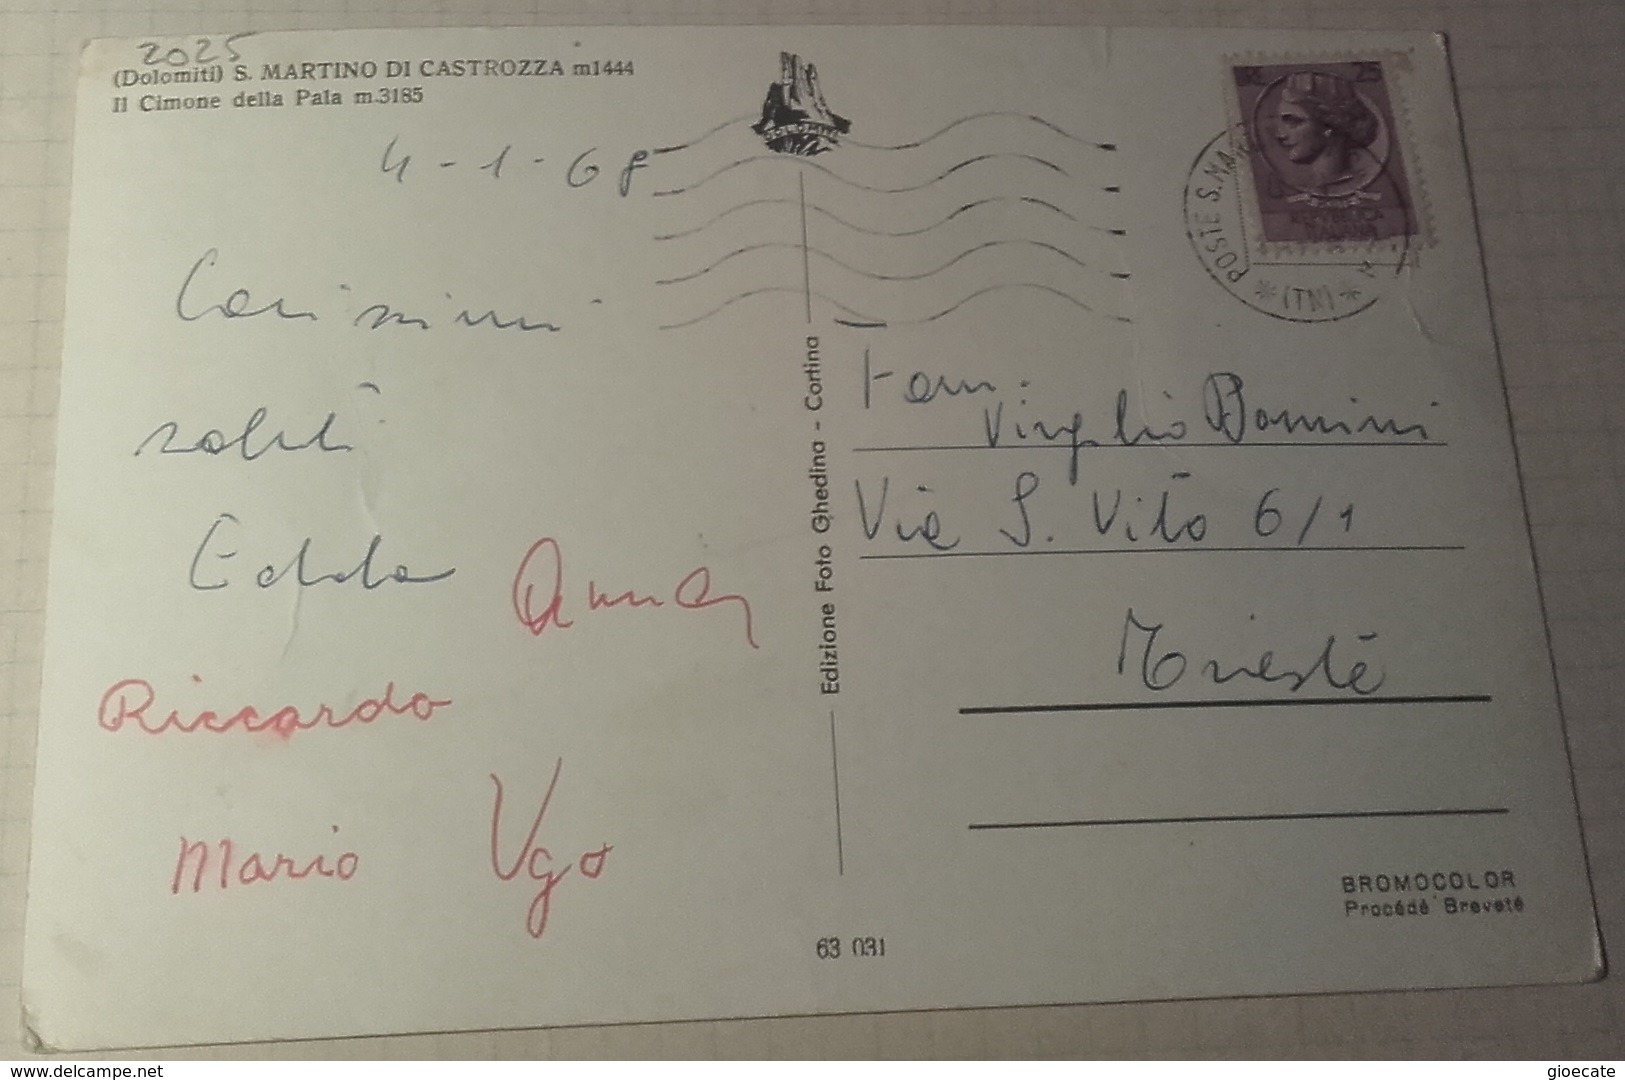 2025
(Dolomiti) S. MARTINO DI CASTROZZA m1444
Il Cimone della Pala m.3185
4-1-68
Carissimi
saluti
Edda Anna
Riccardo
Mario Ugo
DOLOMITI
Edizione Foto Ghedina - Cortina
63 031
LIRE 25
REPVBBLICA
ITALIANA
POSTE S.MA
(TN)
Fam.
Virgilio Bonnini
Via S. Vito 6/1
Trieste
BROMOCOLOR
Procédé Breveté
www.delcampe.net
gioecate